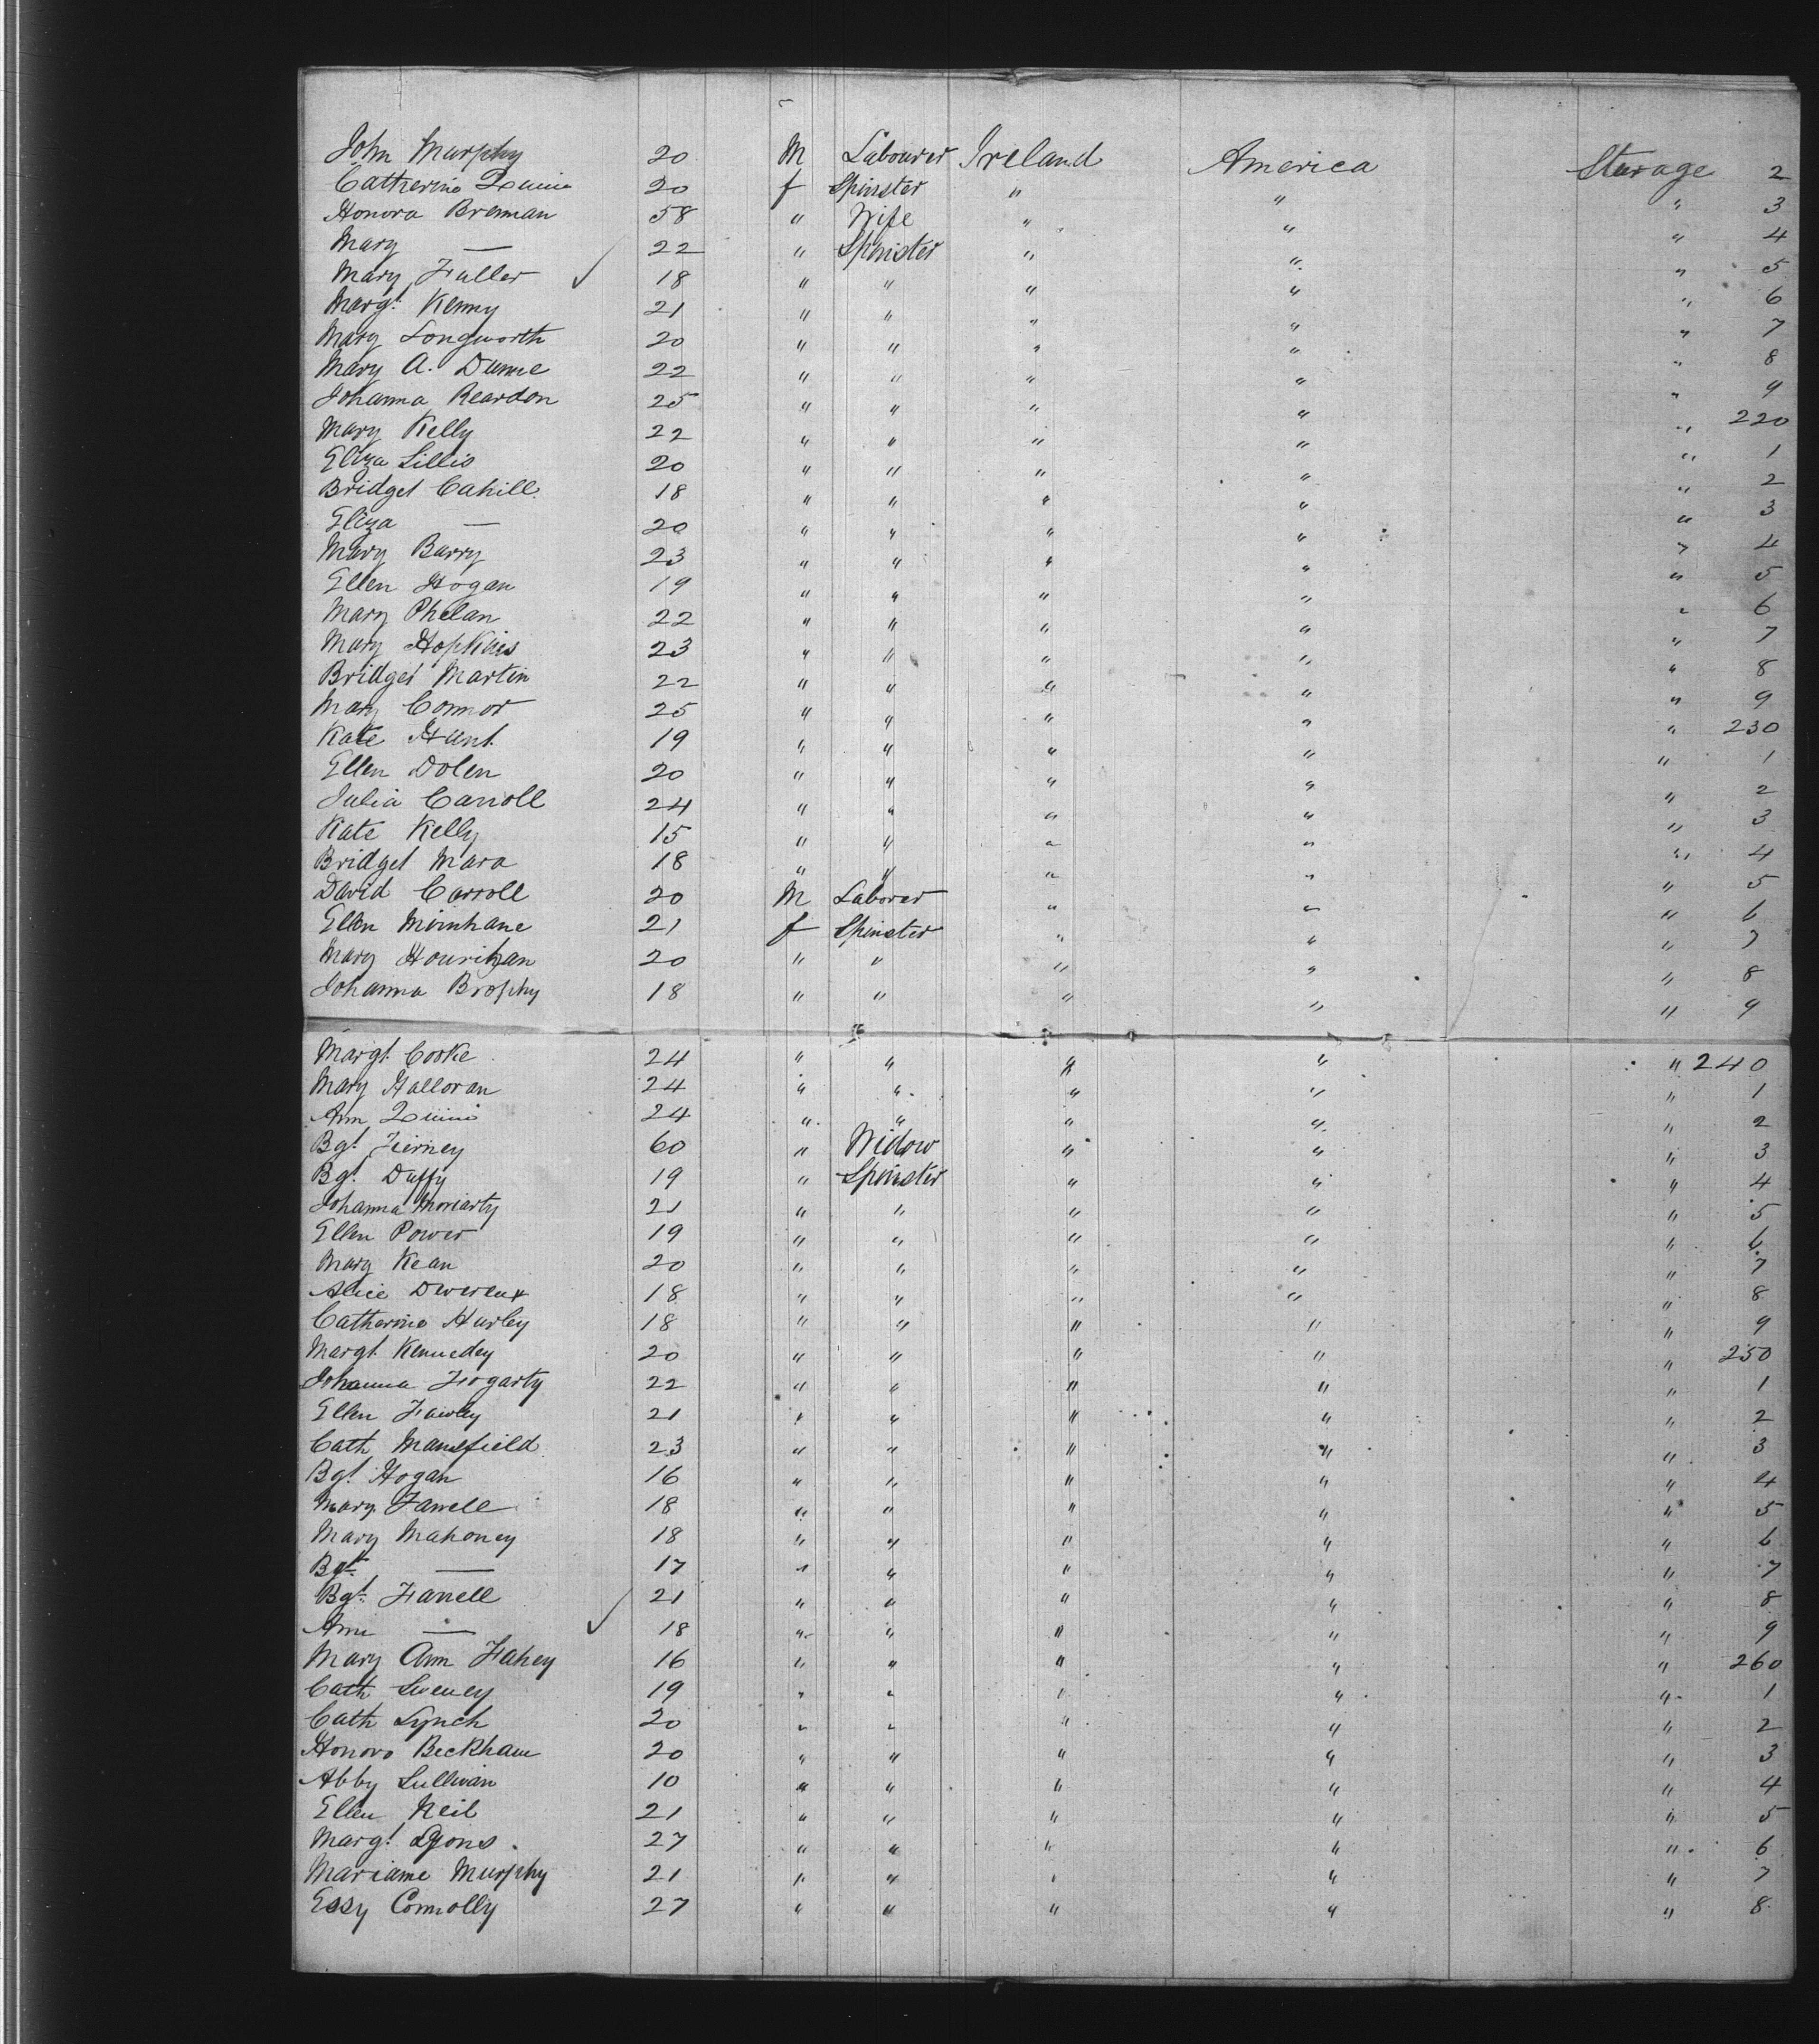 John Murphy 20 M Labourer Ireland America Sturage 2
Catherine Quinn 20 f Spinster " " " 3
Honora Brennan 58 " Wife " " " 4
Mary — 22 " Spinster " " " 5
Mary Fuller ✓ 18 " " " " " 6
Margt. Kenny 21 " " " " " 7
Mary Longworth 20 " " " " " 8
Mary A. Dunne 22 " " " " " 9
Johanna Reardon 25 " " " " " 220
Mary Kelly 22 " " " " " 1
Eliza Lillis 20 " " " " " 2
Bridget Cahill 18 " " " " " 3
Eliza — 20 " " " " " 4
Mary Barry 23 " " " " " 5
Ellen Hogan 19 " " " " " 6
Mary Phelan 22 " " " " " 7
Mary Hopkins 23 " " " " " 8
Bridget Martin 22 " " " " " 9
Mary Connor 25 " " " " " 230
Kate Hunt 19 " " " " " 1
Ellen Dolen 20 " " " " " 2
Julia Carroll 24 " " " " " 3
Kate Kelly 15 " " " " " 4
Bridget Mara 18 " " " " " 5
David Carroll 20 M Laborer " " " 6
Ellen Minihane 21 f Spinster " " " 7
Mary Hourihan 20 " " " " " 8
Johanna Brophy 18 " " " " " 9
Margt. Cooke 24 " " " " " 240
Mary Halloran 24 " " " " " 1
Ann Quinn 24 " " " " " 2
Bgt. Tierney 60 " Widow " " " 3
Bgt. Duffy 19 " Spinster " " " 4
Johanna Moriarty 21 " " " " " 5
Ellen Power 19 " " " " " 6
Mary Kean 20 " " " " " 7
Alice Devereux 18 " " " " " 8
Catherine Hurley 18 " " " " " 9
Margt. Kennedey 20 " " " " " 250
Johanna Fogarty 22 " " " " " 1
Ellen 21 " " " " " 2
Cath Mansfield 23 " " " " " 3
Bgt. Hogan 16 " " " " " 4
Mary Farrell 18 " " " " " 5
Mary Mahoney 18 " " " " " 6
Bgt. — 17 " " " " " 7
Bgt. Farrell 21 " " " " " 8
Ann — ✓ 18 " " " " " 9
Mary Ann Fahey 16 " " " " " 260
Cath Sweney 19 " " " " " 1
Cath Lynch 20 " " " " " 2
Honoro Beckham 20 " " " " " 3
Abby Sullivan 10 " " " " " 4
Ellen Neil 21 " " " " " 5
Margt. Lyons 27 " " " " " 6
Marianne Murphy 21 " " " " " 7
Essy Connolly 27 " " " " " 8